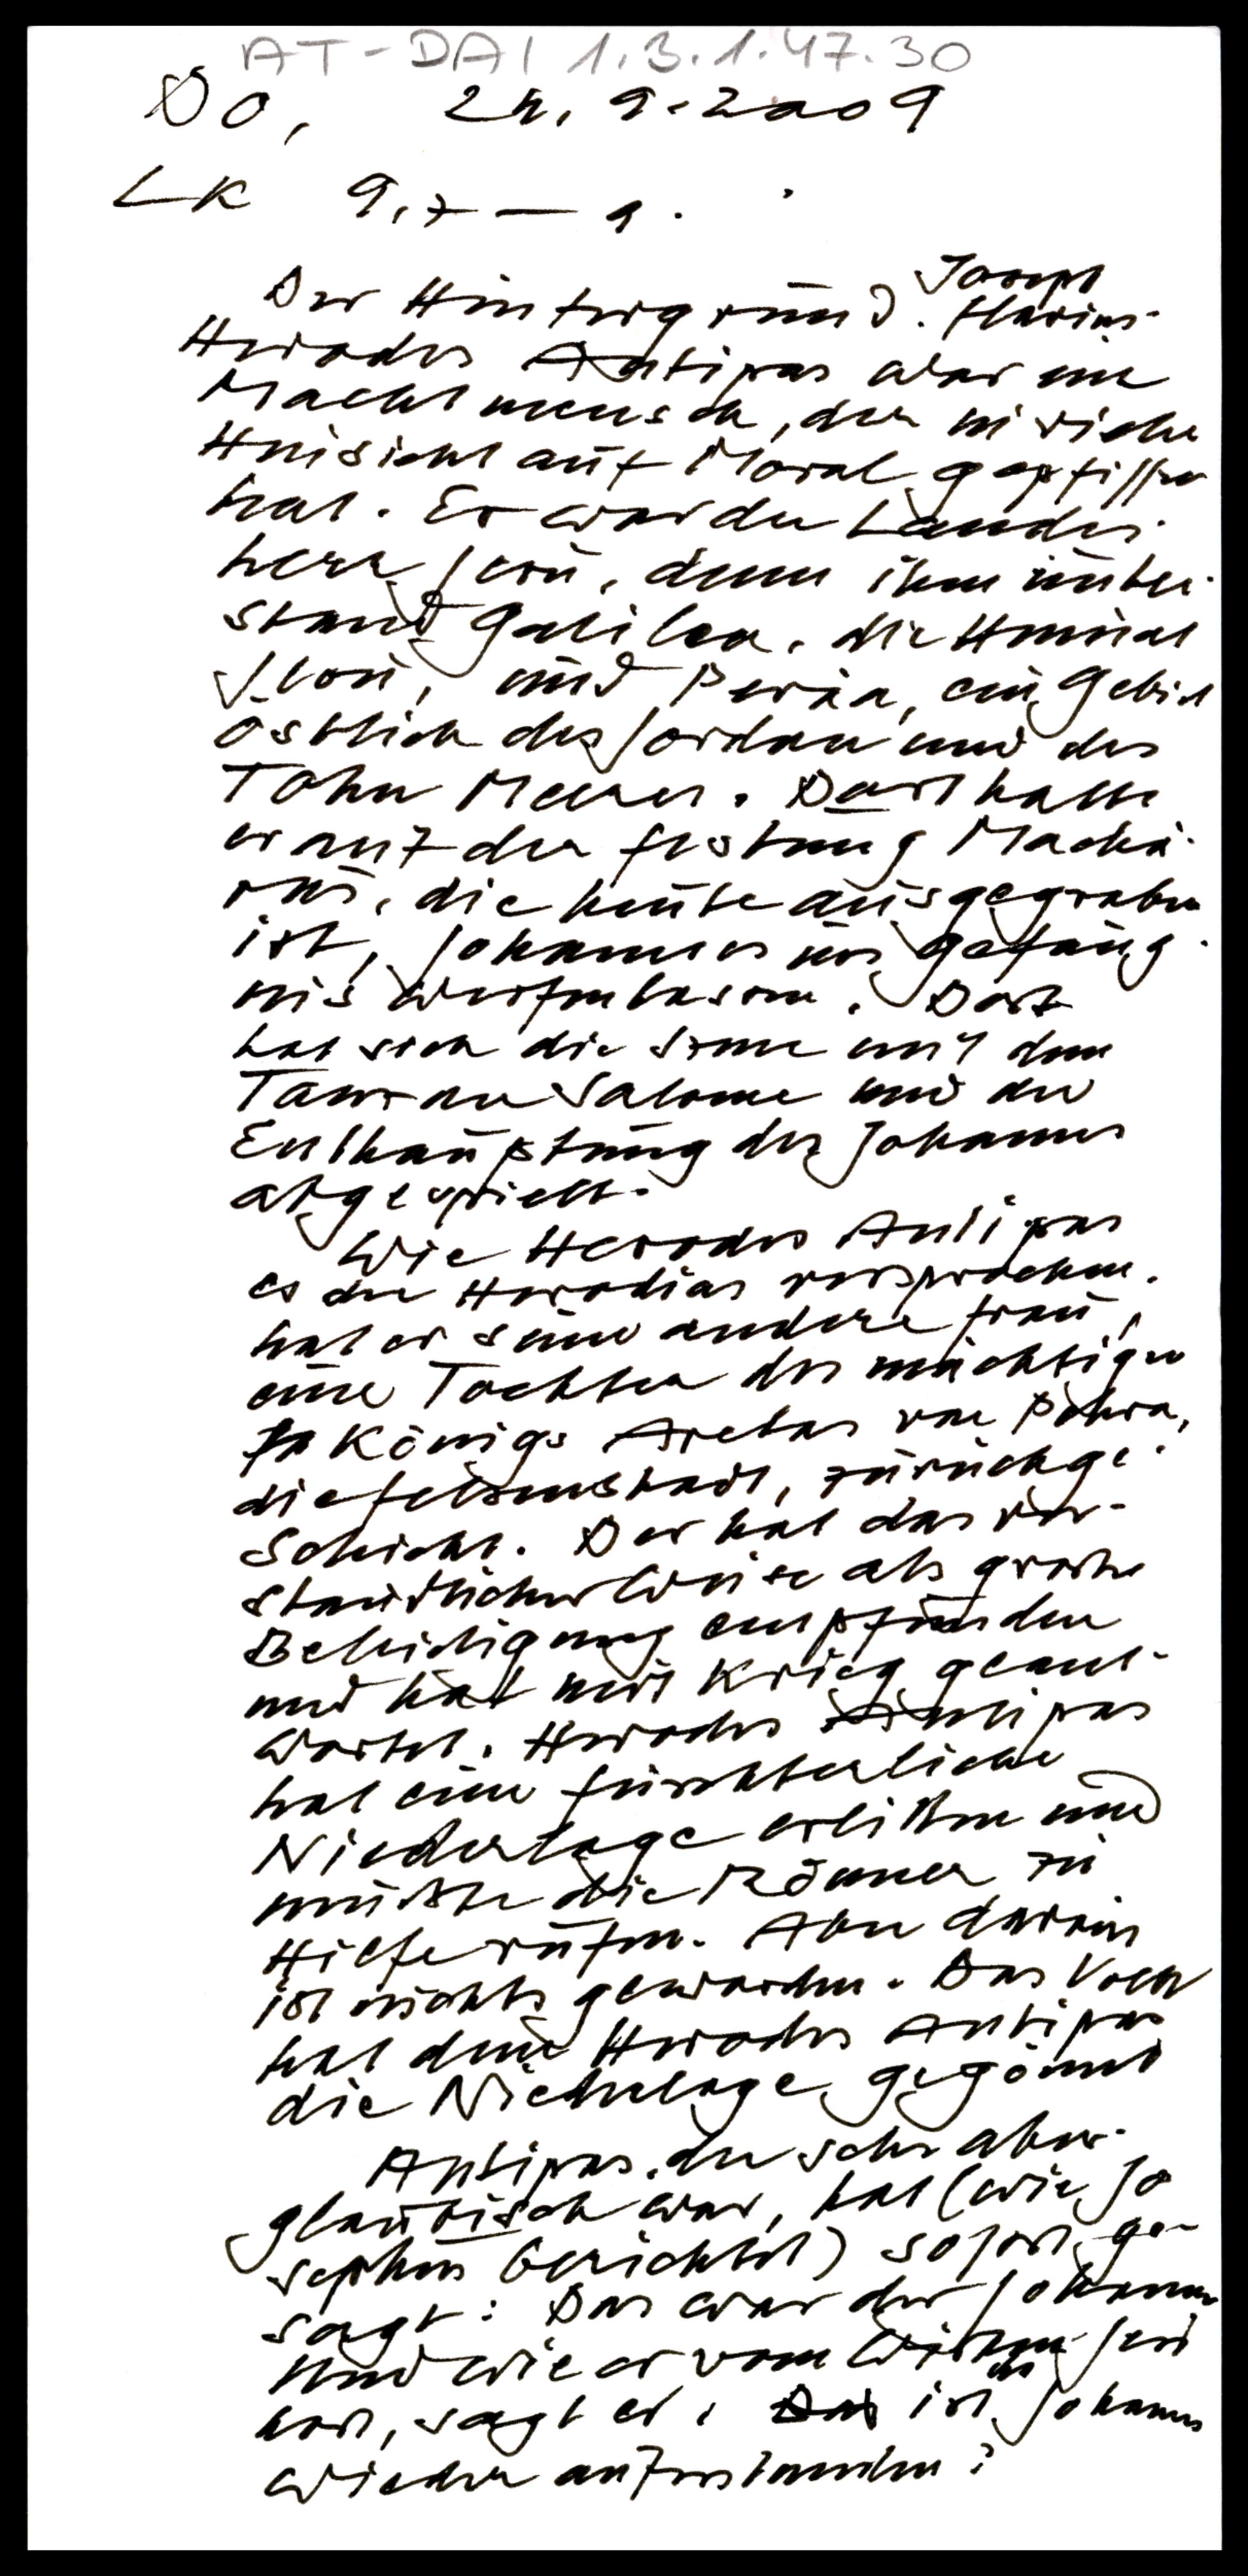 AT-DAI 1.3.1.47.30
DO, 24. 9. 2009
LK 9,7 — 9.
Joseph
Der Hintergrund. Flavius.
Herodes Antipas war ein
Machtmensch, der in vieler
Hinsicht auf Moral gepfiffen
hat. Er war der Landes-
herr Jesu, denn ihm unter-
stand Galilea, die Heimat
Jesu, und Peräa, ein Gebiet
östlich des Jordan und des
Toten Meeres. Dort hatte
er auf der Festung Machä-
rus, die heute ausgegraben
ist, Johannes ins Gefäng-
nis werfen lassen. Dort
hat sich die Szene mit dem
Tanz der Salome und der
Enthauptung des Johannes
abgespielt.
Wie Herodes Antipas
es der Herodias versprochen,
hat er seine andere Frau,
eine Tochter des mächtigen
Königs Aretas von Petra,
die Felsenstadt, zurückge-
schickt. Der hat das ver-
ständlicher Weise als große
Beleidigung empfunden
und hat mit Krieg geant-
wortet. Herodes Antipas
hat eine fürchterliche
Niederlage erlitten und
mußte die Römer zu
Hilfe rufen. Aber daraus
ist nichts geworden. Das Volk
hat dem Herodes Antipas
die Niederlage gegönnt
Antipas, der sehr aber-
gläubisch war, hat (wie Jo
sephus berichtet) sofort ge-
sagt: Das war der Johannes
Und wie er vom Wirken Jesu
hört, sagt er: Das ist der Johannes
wieder auferstanden?